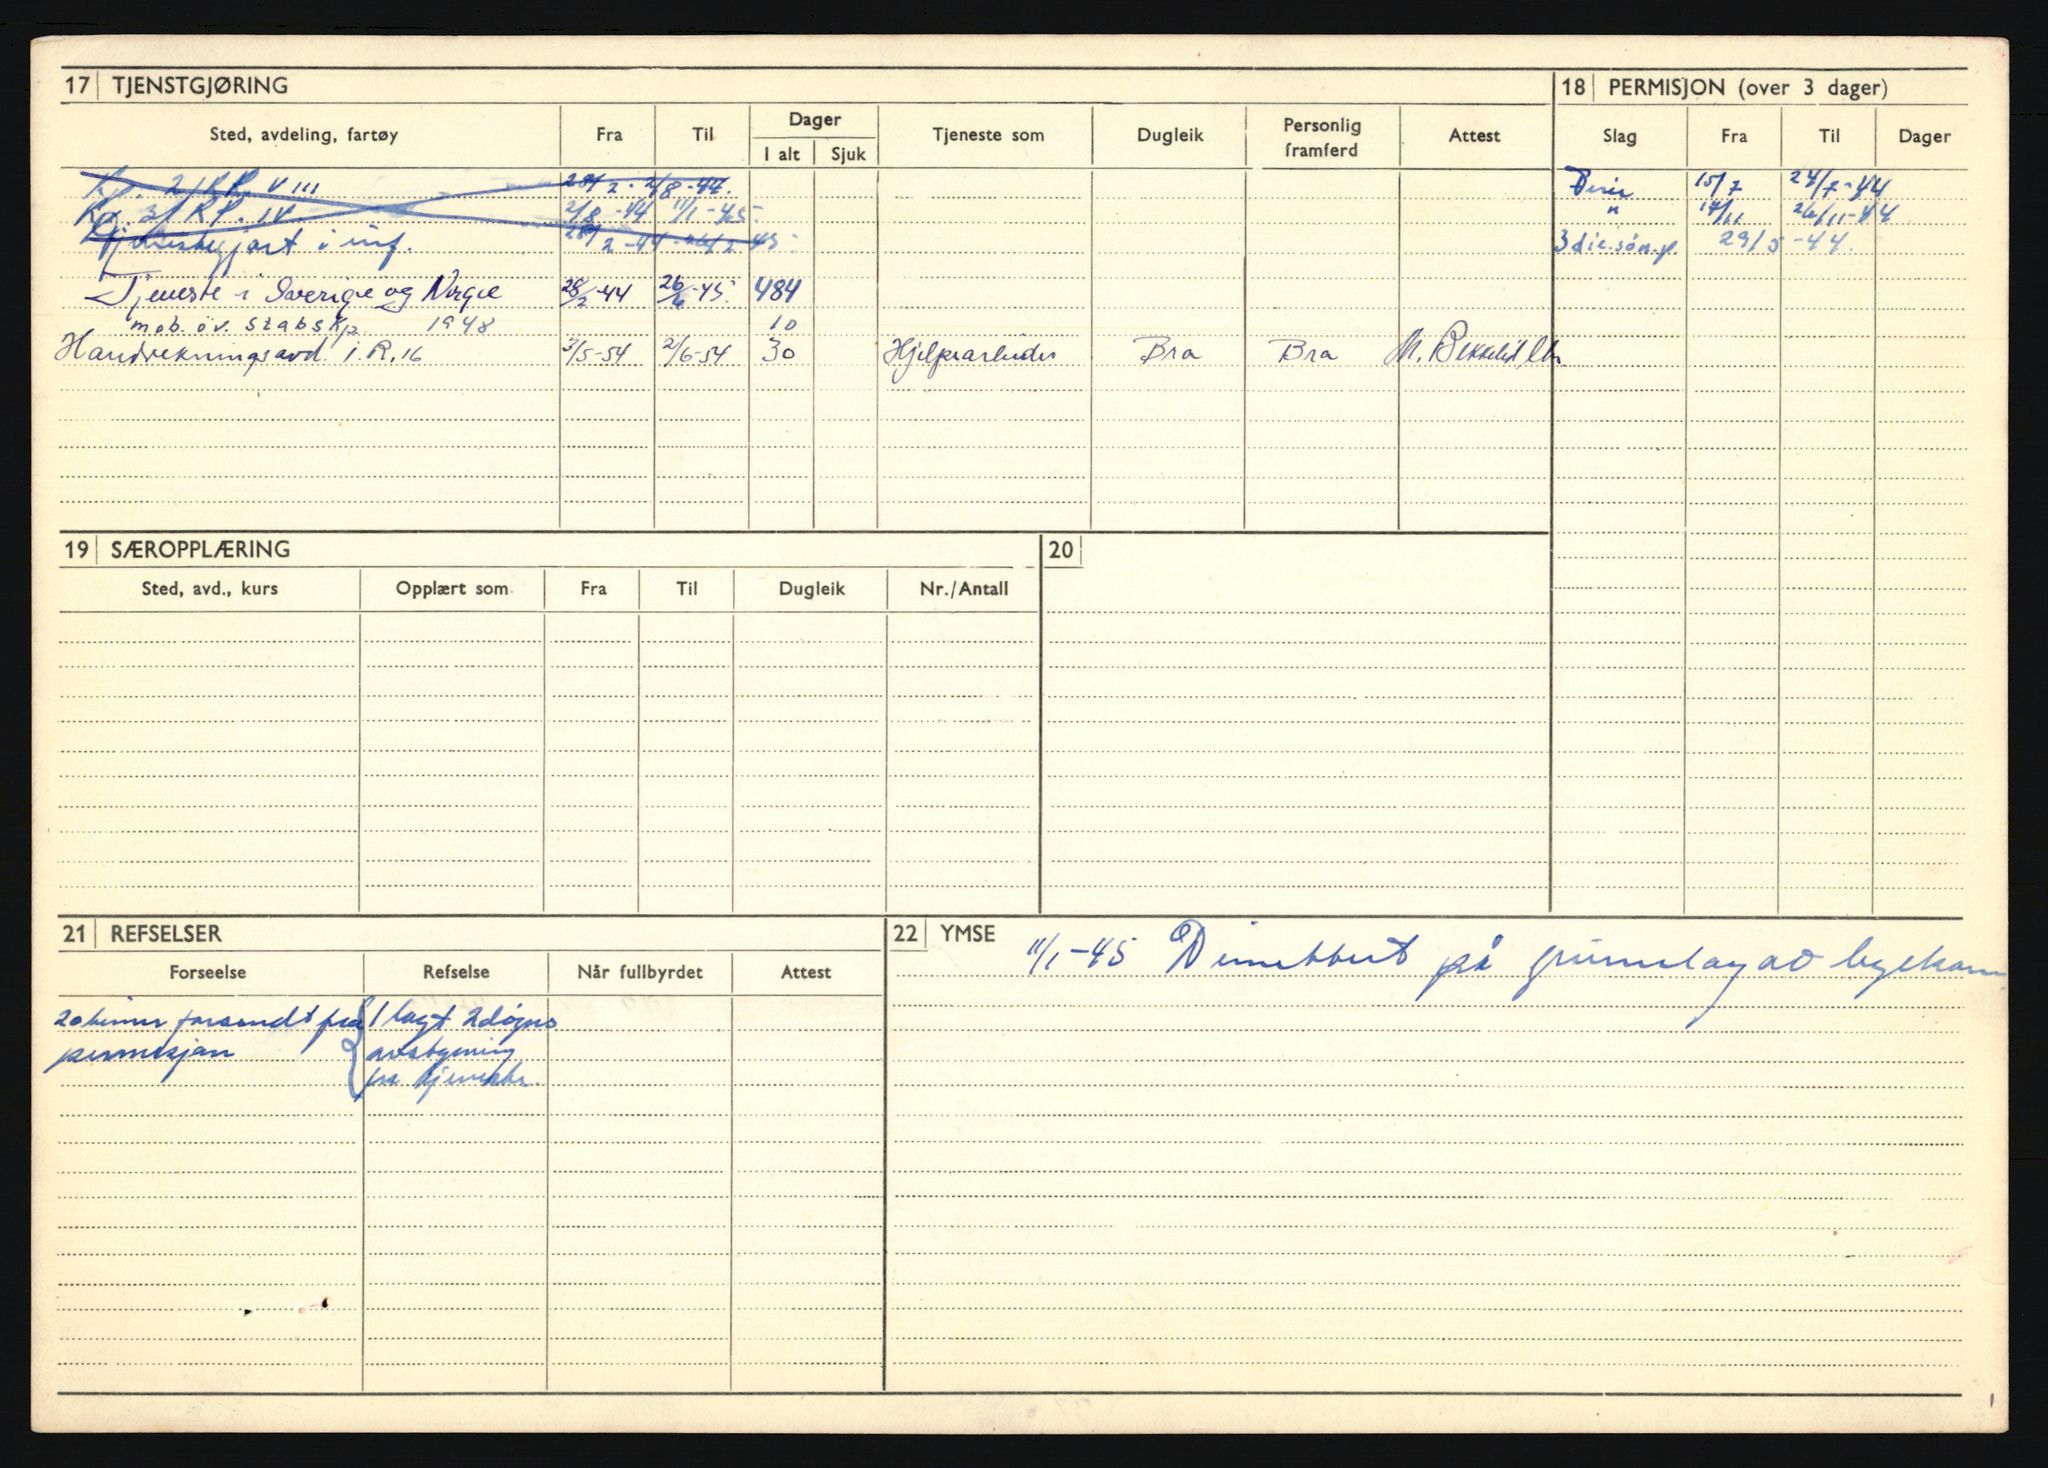 17 TJENSTGJØRING
18 PERMISJON (over 3 dager)
Sted, avdeling, fartøy Fra Til Dager I alt Sjuk Tjeneste som Dugleik Personlig framferd Attest
Slag Fra Til Dager
Kp. 2/R.P. VIII 28/2 - 2/8-44.
15/7 24/7-44
Kp. 3/R.P. IV. 2/8-44 11/1-45
" 17/11 26/11-44
Tjenestegjort i inf. 28/2-44 -45
29/5-44.
Tjeneste i Sverige og Norge 28/2-44 26/6-45 484
mob. öv. stabskp. 1948 10
Handrekningsavd. I.R.16 3/5-54 2/6-54 30 Hjelpearbeider Bra Bra
19 SÆROPPLÆRING
20
Sted, avd., kurs Opplært som Fra Til Dugleik Nr./Antall
21 REFSELSER
22 YMSE
11/1-45 Dimittert på grunnlag av
Forseelse Refselse Når fullbyrdet Attest
20 timer forsendt fra
permisjon
1 lagt 2 døgns
avstengning
fra tjeneste.